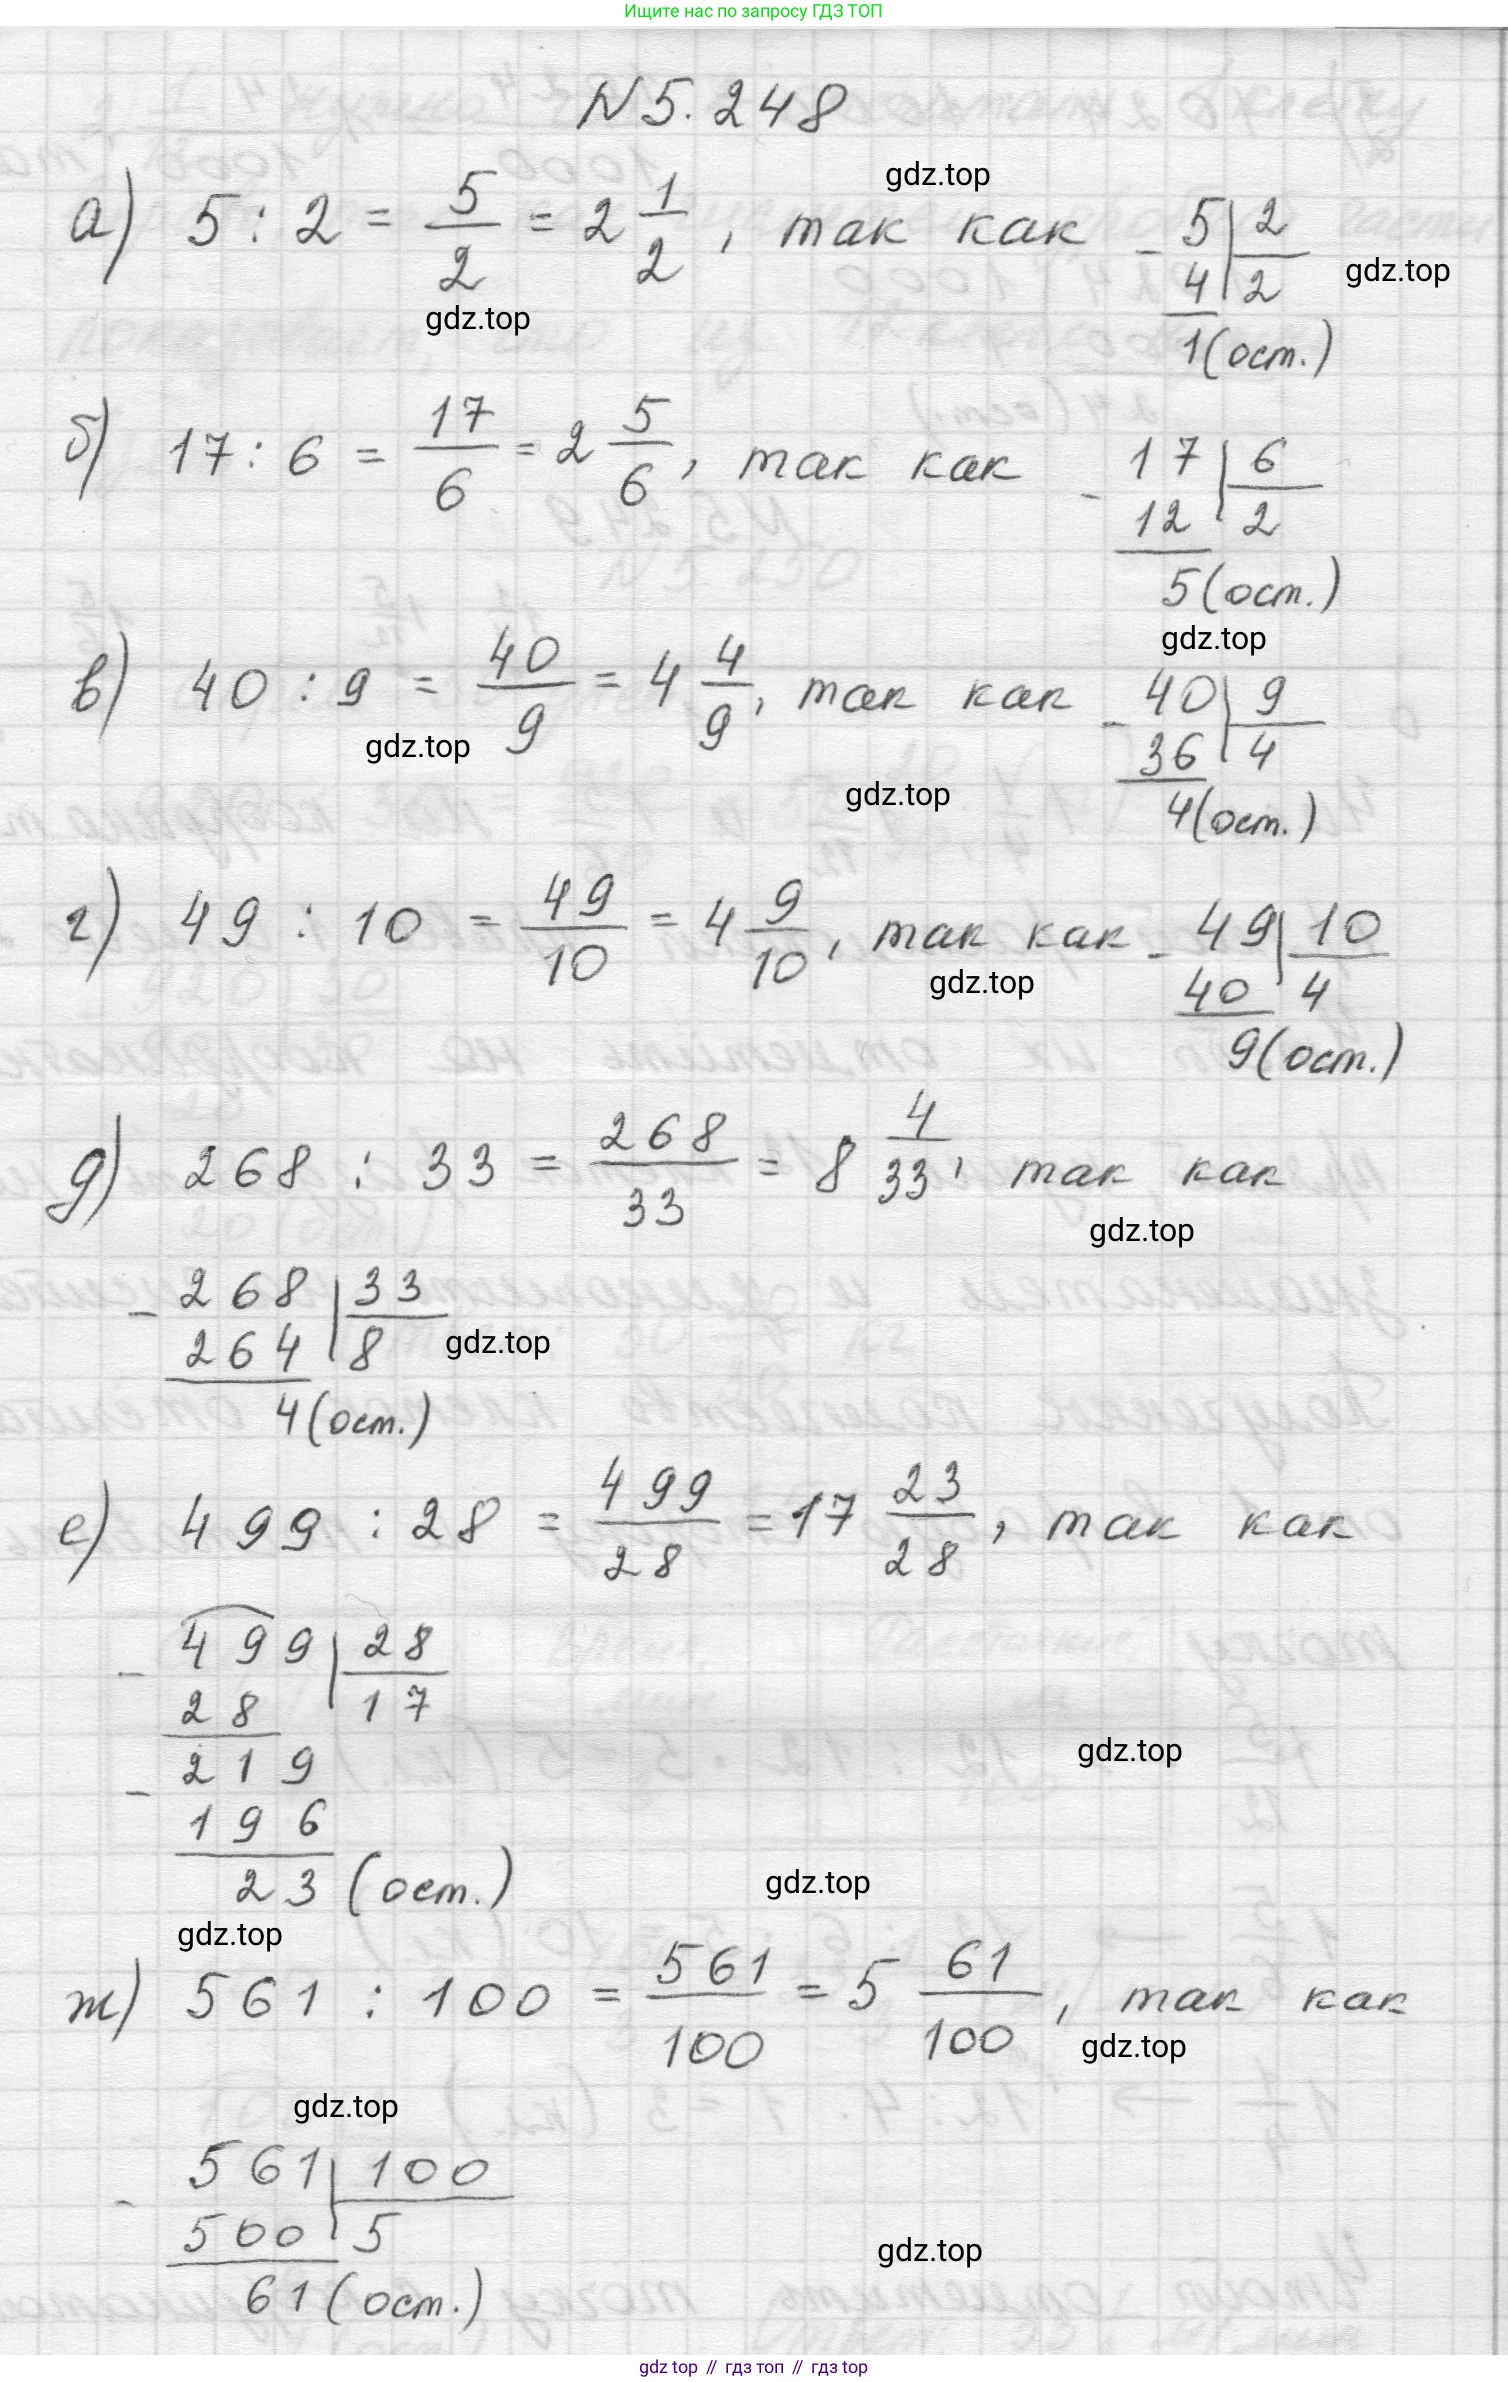 Ищите нас по запросу ГДЗ ТОП
N 5.248
gdz.top
а) 5 : 2 = 5/2 = 2 1/2, так как
- 5 | 2
4 | 2
1 (ост.)
gdz.top
gdz.top
б) 17 : 6 = 17/6 = 2 5/6, так как
- 17 | 6
12 | 2
5 (ост.)
gdz.top
в) 40 : 9 = 40/9 = 4 4/9, так как
- 40 | 9
36 | 4
4 (ост.)
gdz.top
gdz.top
г) 49 : 10 = 49/10 = 4 9/10, так как
- 49 | 10
40 | 4
9 (ост.)
gdz.top
д) 268 : 33 = 268/33 = 8 4/33, так как
gdz.top
- 268 | 33
264 | 8
4 (ост.)
gdz.top
е) 499 : 28 = 499/28 = 17 23/28, так как
- 499 | 28
28 | 17
- 219
196
23 (ост.)
gdz.top
gdz.top
gdz.top
ж) 561 : 100 = 561/100 = 5 61/100, так как
gdz.top
gdz.top
- 561 | 100
500 | 5
61 (ост.)
gdz.top
gdz top // гдз топ // гдз top